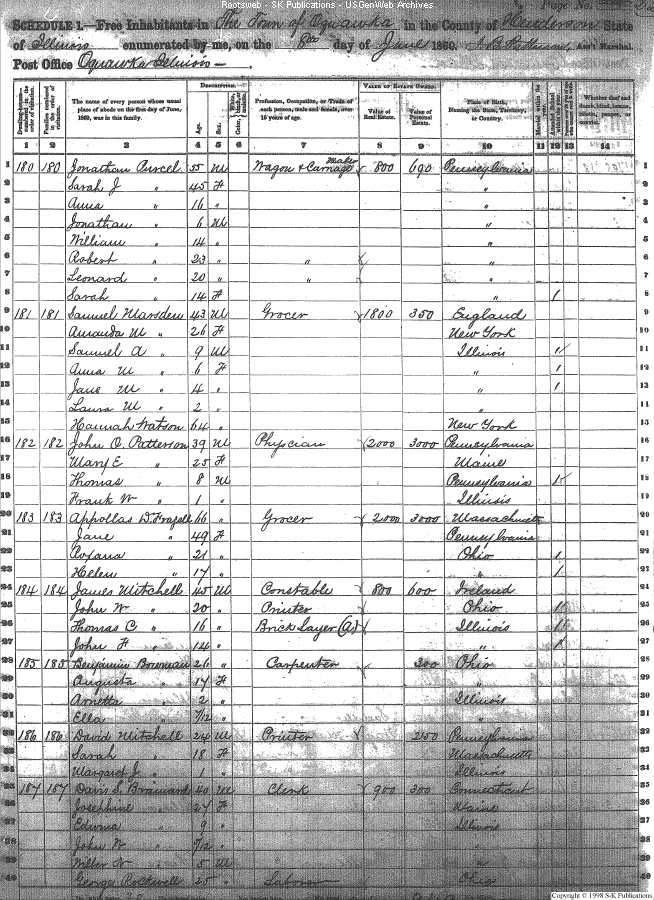 Rootsweb - SK Publications - USGenWeb Archives
Page No.
SCHEDULE 1.—Free Inhabitants in The Town of Oquawka in the County of Henderson State
of Illinois enumerated by me, on the 8th day of June 1860. Ass't Marshal
Post Office Oquawka Illinois
DESCRIPTION. VALUE OF ESTATE OWNED.
The name of every person whose usual place of abode on the first day of June, 1860, was in this family. Age. Sex. Profession, Occupation, or Trade of each person, male and female, over 15 years of age. Value of Real Estate. Value of Personal Estate. Place of Birth, Naming the State, Territory, or Country.
1 2 3 4 5 6 7 8 9 10 11 12 13 14
1 180 180 Jonathan Purcel 55 M Wagon & Carriage Maker 800 690 Pennsylvania
2 Sarah J " 45 F "
3 Anna " 16 " "
4 Jonathan " 6 M "
5 William " 14 " "
6 Robert " 23 " " "
7 Leonard " 20 " " "
8 Sarah " 14 F " 1
9 181 181 Samuel Marsden 43 M Grocer 1800 350 England
10 Amanda M " 26 F New York
11 Samuel A " 9 M Illinois 1
12 Anna M " 6 F " 1
13 Jane M " 4 " " 1
14 Laura M " 2 " "
15 Hannah Watson 64 " New York
16 182 182 John O. Patterson 39 M Physcian 2000 3000 Pennsylvania
17 Mary E " 25 F Maine
18 Thomas " 8 M Pennsylvania 1
19 Frank W " 1 " Illinois
20 183 183 Appollas D. 66 " Grocer 2000 3000 Massachusetts
21 Jane " 49 F Pennsylvania
22 Roxana " 21 " Ohio 1
23 Helen " 17 " " 1
24 184 184 James Mitchell 45 M Constable 800 600 Ireland
25 John W " 20 " Printer Ohio 1
26 Thomas C " 16 " Brick Layer (A) Illinois 1
27 John F " 14 " " 1
28 185 185 Benjamin Bowman 26 " Carpenter 200 Ohio
29 Augusta " 17 F "
30 Arnetta " 2 " Illinois
31 Ella " 7/12 " "
32 186 186 David Mitchell 24 M Printer 250 Pennsylvania
33 Sarah " 18 F Massachusetts
34 Margaret J " 1 " Illinois
35 187 187 Davis S. Brainard 40 M Clerk 900 300 Connecticut
36 Josephine " 27 F Maine
37 Edwina " 9 " Illinois
38 John W " 9/12 " "
39 Wilber N " 5 M "
40 George Rockwell 25 " Laborer Ohio
Copyright © 1998 S-K Publications